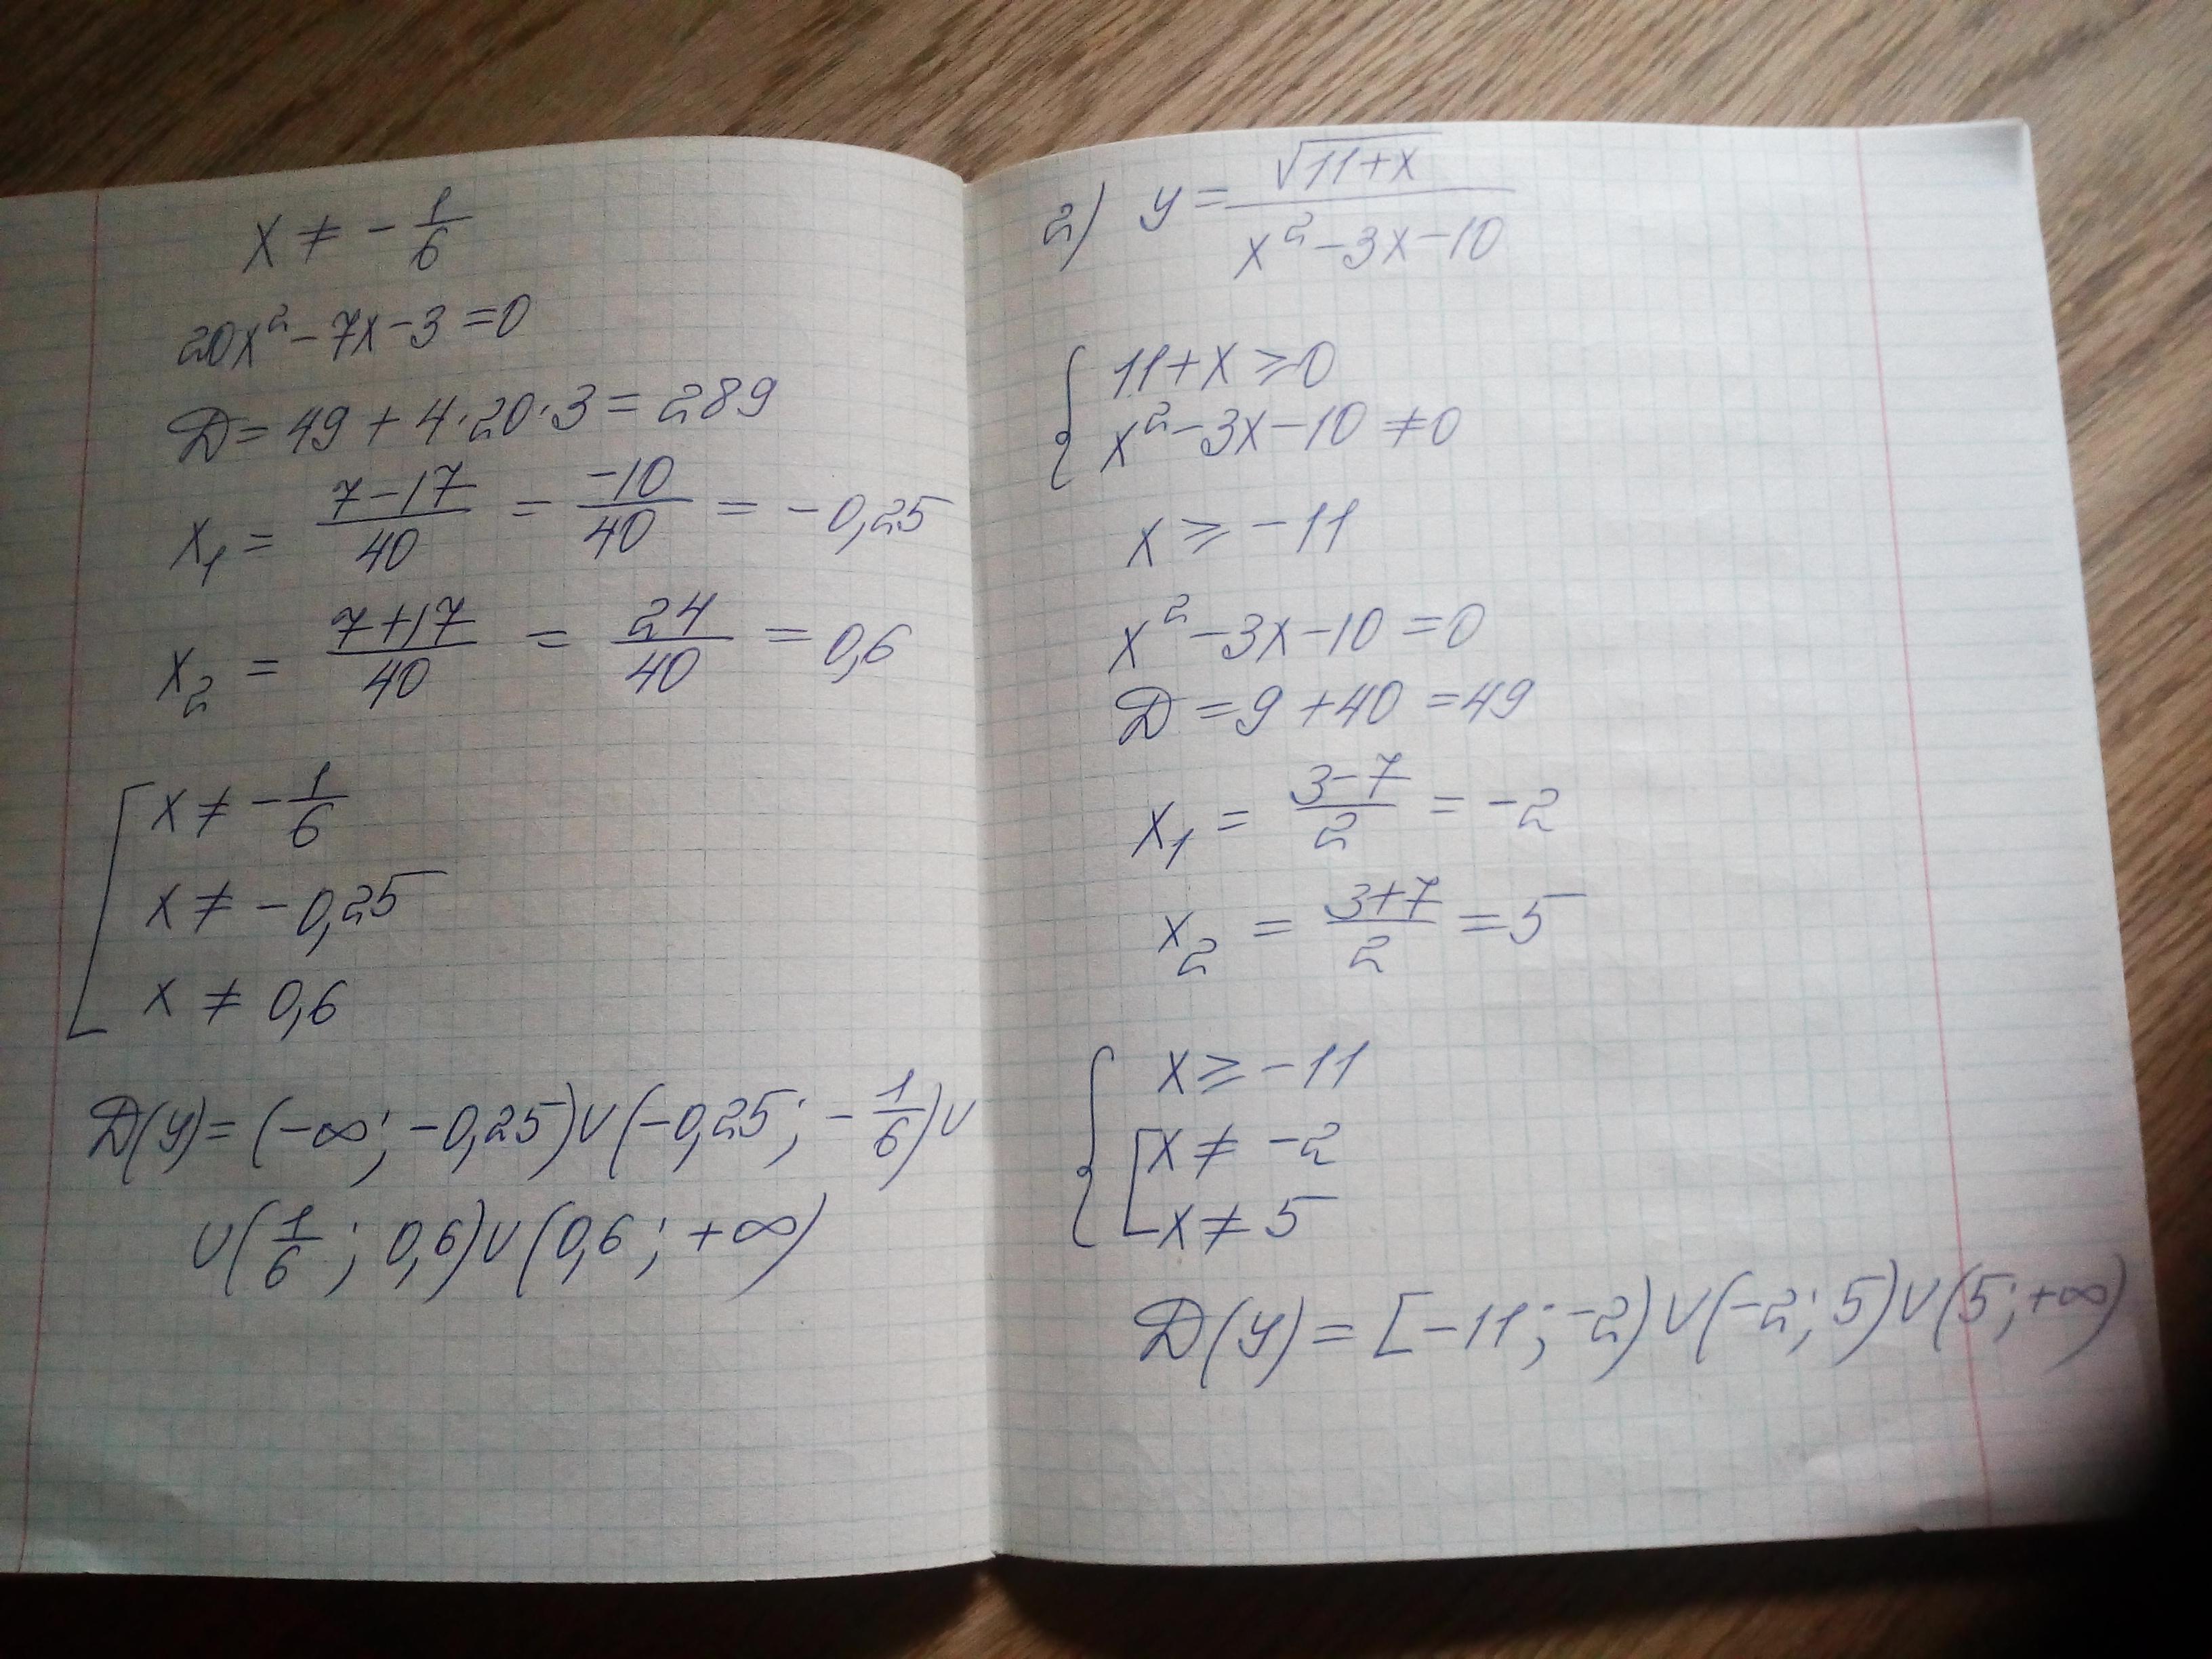 x ≠ -1/6
20x² - 7x - 3 = 0
D = 49 + 4·20·3 = 289
x₁ = (7-17)/40 = -10/40 = -0,25
x₂ = (7+17)/40 = 24/40 = 0,6
[ x ≠ -1/6
x ≠ -0,25
x ≠ 0,6
D(y) = (-∞; -0,25)∪(-0,25; -1/6)∪
∪(1/6; 0,6)∪(0,6; +∞)
2) y = √(11+x)/(x²-3x-10)
{ 11+x ≥ 0
x²-3x-10 ≠ 0
x ≥ -11
x²-3x-10 = 0
D = 9+40 = 49
x₁ = (3-7)/2 = -2
x₂ = (3+7)/2 = 5
{ x ≥ -11
[ x ≠ -2
x ≠ 5
D(y) = [-11; -2)∪(-2; 5)∪(5; +∞)